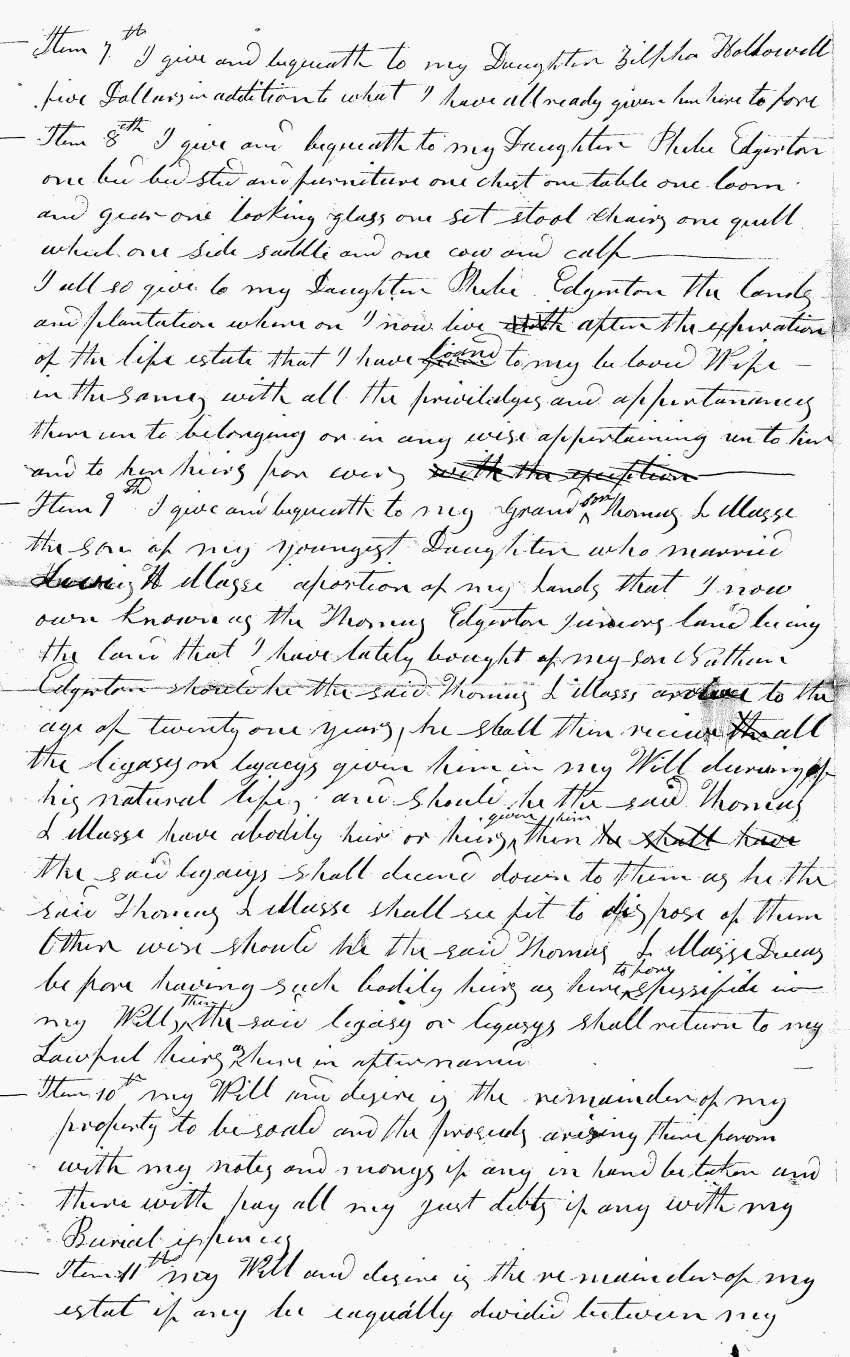 Item 7th I give and bequeath to my Daughter Zilpha Hollowell
five Dollars in addition to what I have allready given her here to fore
Item 8th I give and bequeath to my Daughter Phebe Edgerton
one bed bed sted and furniture one chest one table one loom
and gear one looking glass one set stool chairs one quill
wheel one side saddle and one cow and calf
I all so give to my Daughter Phebe Edgerton the lands
and plantation where on I now live with after the experation
of the life estate that I have loand to my be loved Wife
in the same, with all the priviledges and appertanances
there un to belonging or in any wise appertaining un to her
and to her heirs for ever, with the exception
Item 9th I give and bequeath to my Grand son Thomas L Massee
the son of my youngest Daughter who married
H Massee a portion of my Lands that I now
own known as the Thomas Edgerton Juniors land being
the land that I have lately bought of my son Nathan
Edgerton should he the said Thomas L Masss arive to the
age of twenty one years, he shall then receive the all
the ligasy or lygacys given him in my Will during of
his natural life, and should he the said Thomas
L Massee have abodily heir or heirs, given him then he shall have
the said legacys shall decend down to them as he the
said Thomas L Massee shall see fit to dispose of them
Other wise should he the said Thomas L Massee Deceas
be fore having such bodily heirs as here to fore spessifide in
my Will, then the said legasy or legasys shall return to my
Lawful heirs as here in after named
Item 10th my Will and desire is the remainder of my
property to be soald and the proseeds arising there from
with my notes and monys if any in hand be taken and
there with pay all my just debts if any with my
Burial expences
Item 11th my Will and desire is the remainder of my
estat if any be eaqually divided between my